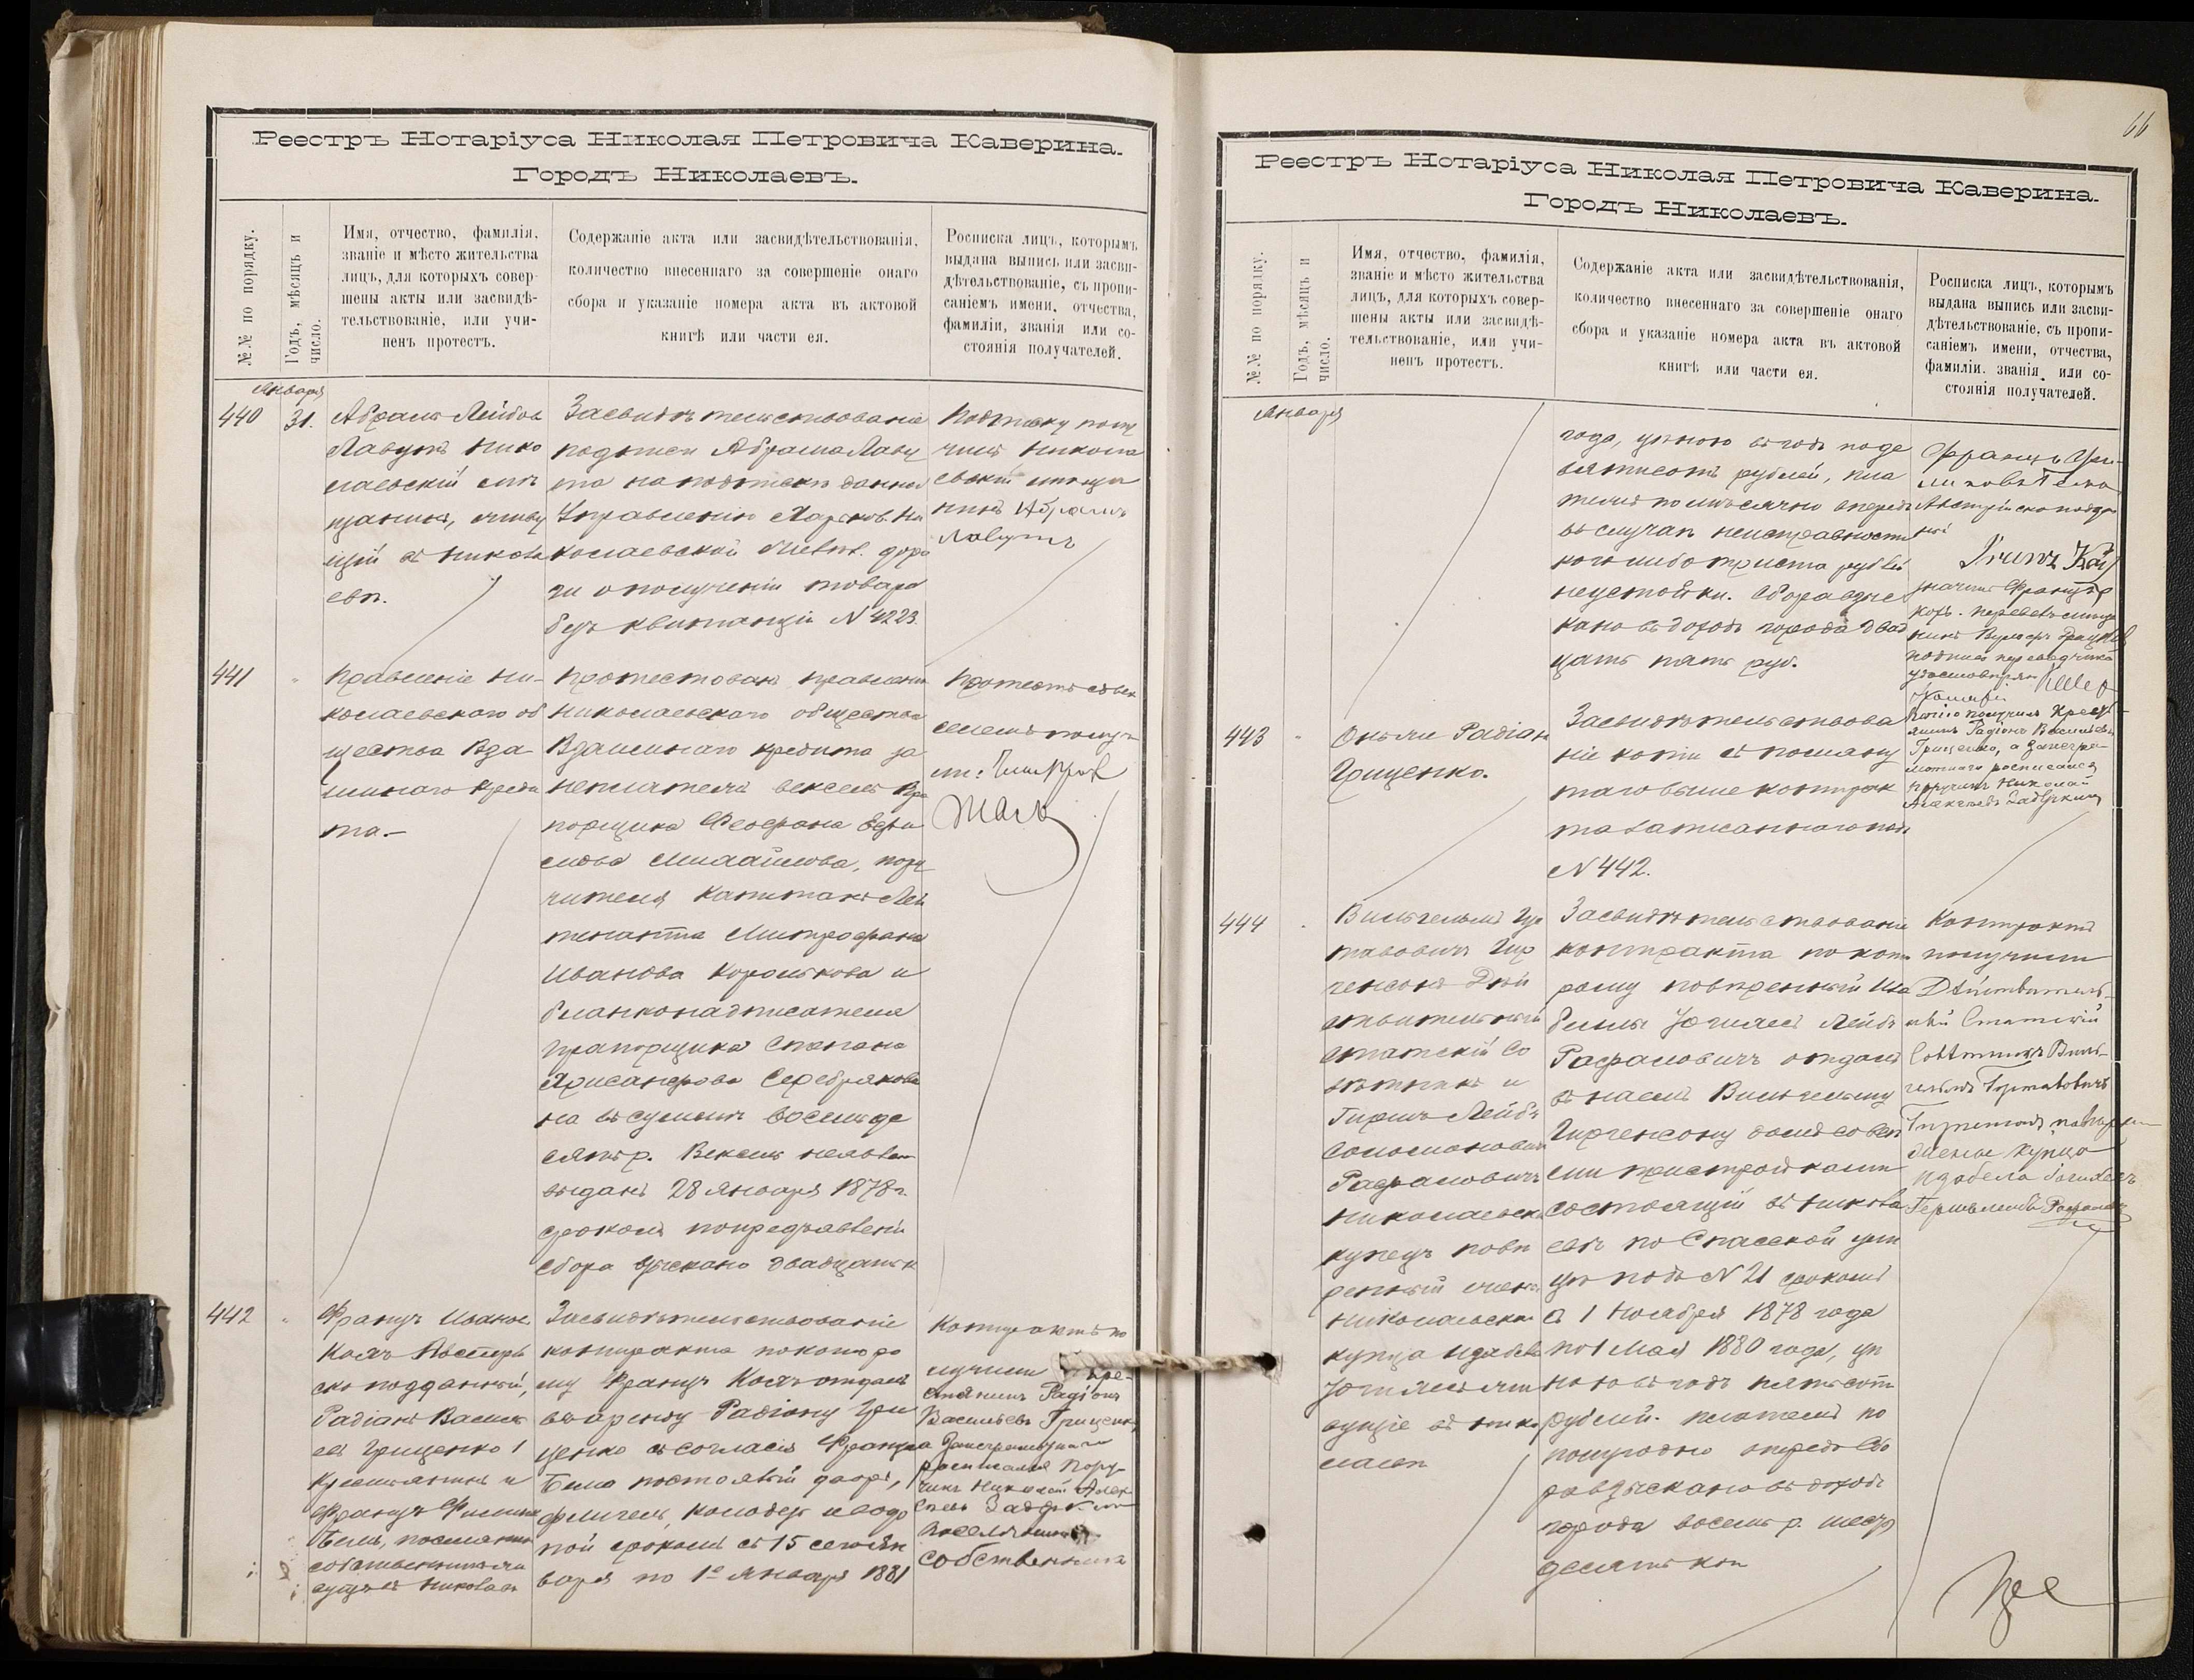 Реестръ Нотаріуса Николая Петровича Каверина.
Городъ Николаевъ.
№№ по порядку.
Годъ, мѣсяцъ и
число.
Имя, отчество, фамилія,
званіе и мѣсто жительства
лицъ, для которыхъ совер-
шены акты или засвидѣ-
тельствованіе, или учи-
ненъ протестъ.
Содержаніе акта или засвидѣтельствованія,
количество внесеннаго за совершеніе онаго
сбора и указаніе номера акта въ актовой
книгѣ или части ея.
Росписка лицъ, которымъ
выдана выпись или засви-
дѣтельствованіе, съ пропи-
саніемъ имени, отчества,
фамиліи, званія или со-
стоянія получателей.
Января
440
31.
Абрамъ Лейбов
Лавутъ Нико
лаевскій мѣ
щанинъ, живу
щій въ Никола
евѣ.
Засвидѣтельствованіе
подписи Абрама Лаву
та на подписки данной
Управленію Харьков. Ни
колаевской дор
ги о полученіи товара
безъ квитанціи N 4223.
Подписку полу
чилъ Никола
евскій мѣща
нинъ Абрамъ
Лавутъ
441
Правленіе Ни-
колаевскаго об
щества Вза-
имнаго Креди
та.-
Протестованъ правленіем
Николаевскаго общества
Взаимнаго кредита за
неплатежъ вексель Пра
порщика Феофана
Михайлова, пору
чителя Капитанъ Лей
тенанта Митрофана
Иванова Королькова и
бланконадписателя
прапорщика Степана
Серебрякова
на въ сумми восемьде
сятъ р. Вексель
выданъ 28 Января 1878 г.
срокомъ по предъявленіи
сбора взыскано двадцать к
Протестъ съ век
селемъ получ
442
Францъ Иванов
Кохъ Австрій
ско подданный,
Радіонъ Василь
евъ Грищенко
Крестьянинъ и
Францъ Филипов
Тема, поселянинъ
собственникъ жи
вущіе въ Николаев
Засвидѣтельствованіе
контракта по которо
му Францъ Кохъ отдалъ
въ аренду Радіону Гри
щенко съ согласія Франца
Тема постоялый дворъ,
флигель, колодезь и водо
пой срокомъ съ 15 сего Ян
варя по 1е Января 1881
Контрактъ по
лучили Кре-
стянинъ Радіонъ
Васильевъ Грищенко,
а за неграмотнаго
росписался Пору-
чикъ Николай Алек
сѣевъ
Поселянинъ
Собственникъ
66
Реестръ Нотаріуса Николая Петровича Каверина.
Городъ Николаевъ.
№№ по порядку.
Годъ, мѣсяцъ и
число.
Имя, отчество, фамилія,
званіе и мѣсто жительства
лицъ, для которыхъ совер-
шены акты или засвидѣ-
тельствованіе, или учи-
ненъ протестъ.
Содержаніе акта или засвидѣтельствованія,
количество внесеннаго за совершеніе онаго
сбора и указаніе номера акта въ актовой
книгѣ или части ея.
Росписка лицъ, которымъ
выдана выпись или засви-
дѣтельствованіе, съ пропи-
саніемъ имени, отчества,
фамиліи, званія или со-
стоянія получателей.
Января
года, цѣною въ годъ по де
вятисотъ рублей, пла
тежъ помѣсячно впередъ
въ случаѣ неисправности
кого либо триста рублей
неустойки. Сбора взыс
кано въ доходъ города двад
цать пять руб.
Францъ Фи-
липовъ Тема
Австрійско поддан
ный
Franz Koch
значитъ Францъ
Кохъ. перевелъ мѣща
нинъ
подпись переводчика
удостовѣряю
443
Онъ же Радіон
Грищенко.
Засвидѣтельствова
ніе копіи съ помяну
таго выше контрак
та записаннаго подъ
N 442.
Копію получилъ Крест-
янинъ Радіонъ Васильевъ
Грищенко, а за негра-
мотнаго росписался
поручикъ Николай
Алексѣевъ
444
Вильгельмъ Гус
тавовичъ Гир
генсонъ Дѣй
ствительный
статскій Со
вѣтникъ и
Гиршъ Лейбъ
Соломоновъ
Рафаловичъ
Николаевскій
купецъ повѣ
ренный жены
Николаевскаго
купца Изабелы
жи
вущіе въ Нико
лаевѣ
Засвидѣтельствованіе
контракта по кото
рому повѣренный Иза
беллы Лейбъ
Рафаловичъ отдалъ
въ наемъ Вильгельму
Гиргенсону домъ со всѣ
ми пристройками
состоящій въ Никола
евѣ по Спасской ули
цѣ подъ N 21 срокомъ
съ 1 Ноября 1878 года
по 1 Мая 1880 года, цѣ
ною въ годъ пятьсот
рублей. платежъ по
полугодно впередъ Сбо
ра взыскано въ доходъ
города восемь р. шесть
десятъ коп
Контрактъ
получили
Дѣйствитель-
ный Статскій
Совѣтникъ Виль-
гельмъ Густавовичъ
Гиргенсонъ, повѣрен
жены купца
Изабела
Рафалович